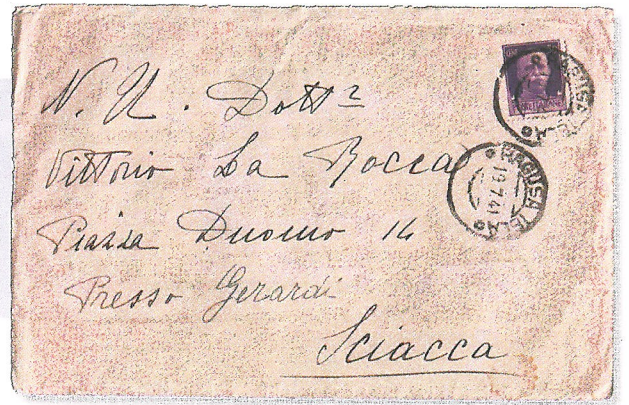 N. U. Dott.
Vittorio La Rocca
Piazza Duomo 14
Presso Gerardi
Sciacca
RAGUSA IBLA
19.7.41